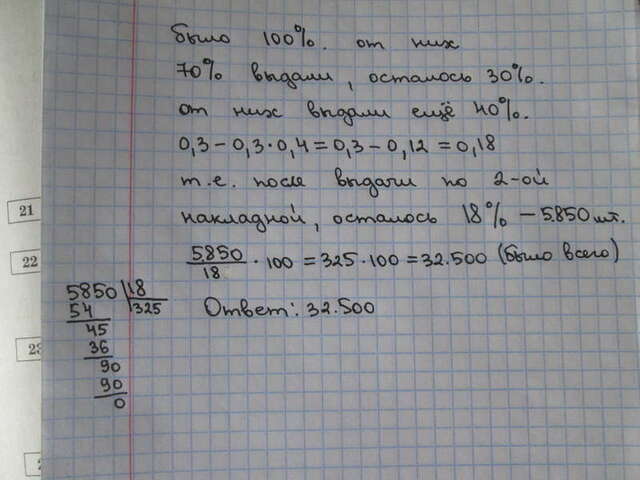 было 100%. от них
70% выдали, осталось 30%.
от них выдали ещё 40%.
0,3 - 0,3·0,4 = 0,3 - 0,12 = 0,18
т.е. после выдачи по 2-ой
накладной, осталось 18% - 5.850 шт.
5850/18 · 100 = 325 · 100 = 32.500 (было всего)
Ответ: 32.500
5850 18
54 325
45
36
90
90
0
21
22
23